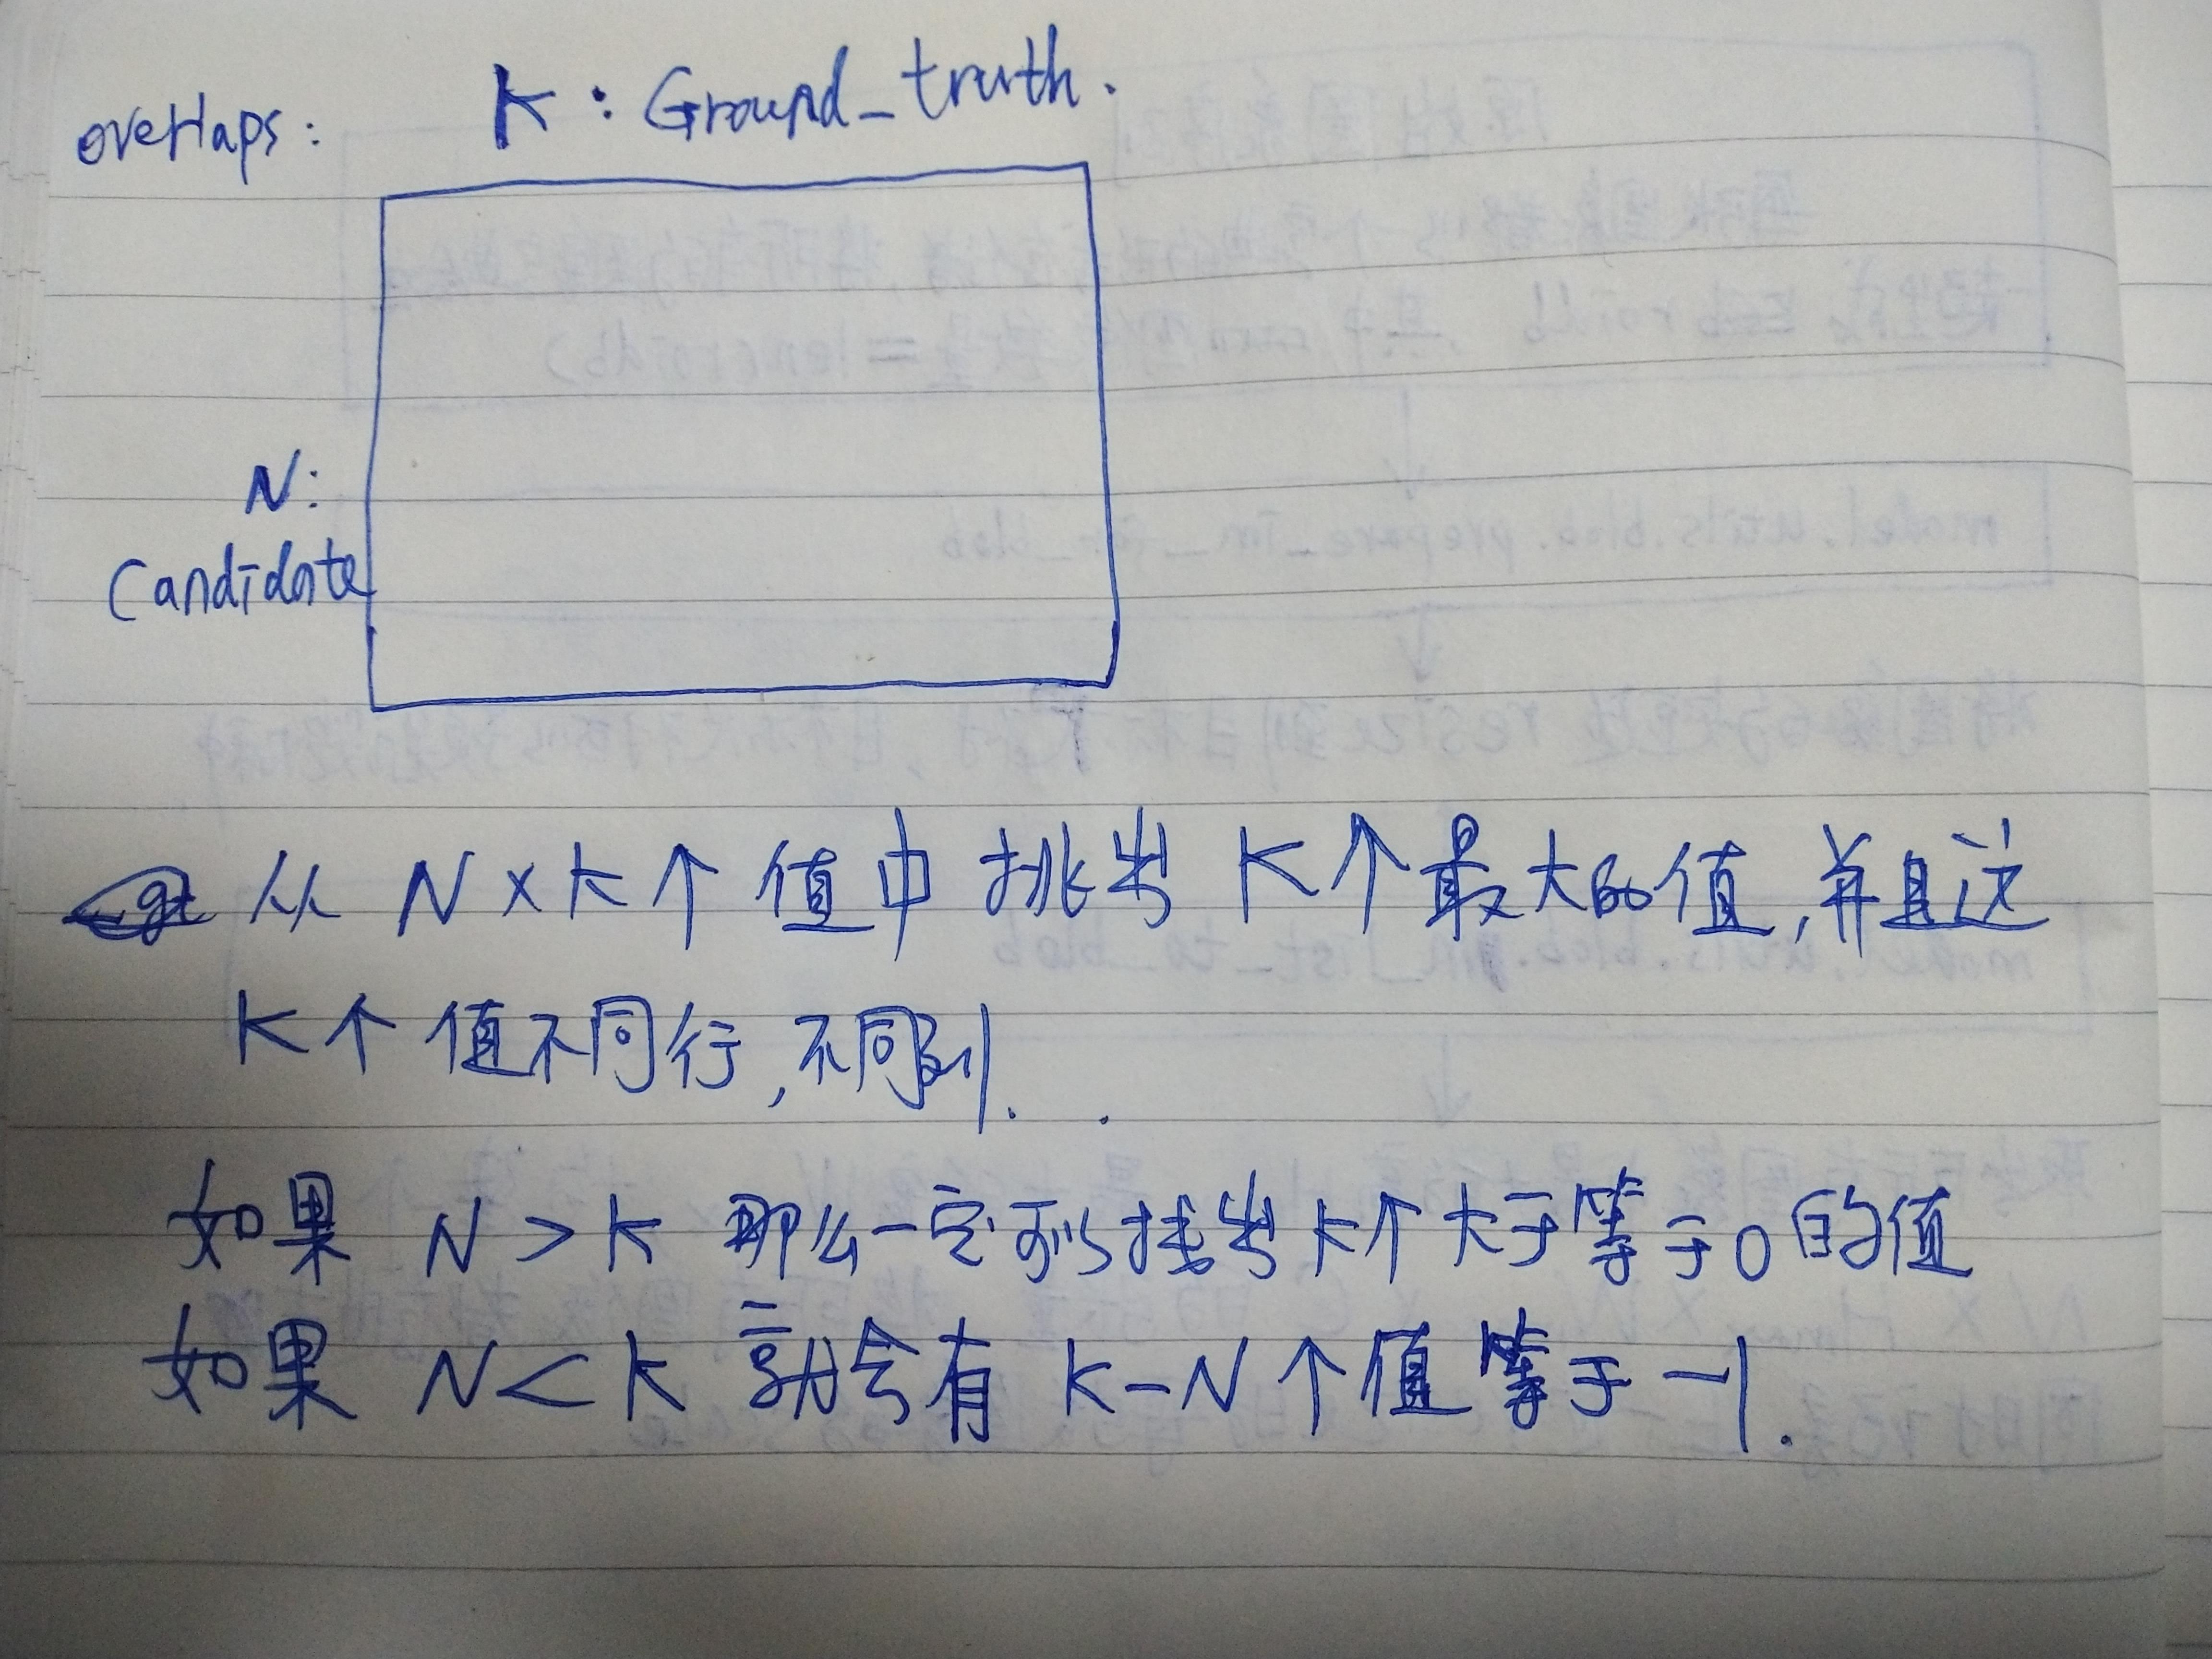 overlaps:
K: Ground_truth.
N:
Candidate
从 N×K个 值中 挑出 K个最大的值,并且这
K个 值不同行,不同列.
如果 N>K 那么一定可以挑出K个大于等于0的值
如果 N<K 就会有 K-N个值等于-1.